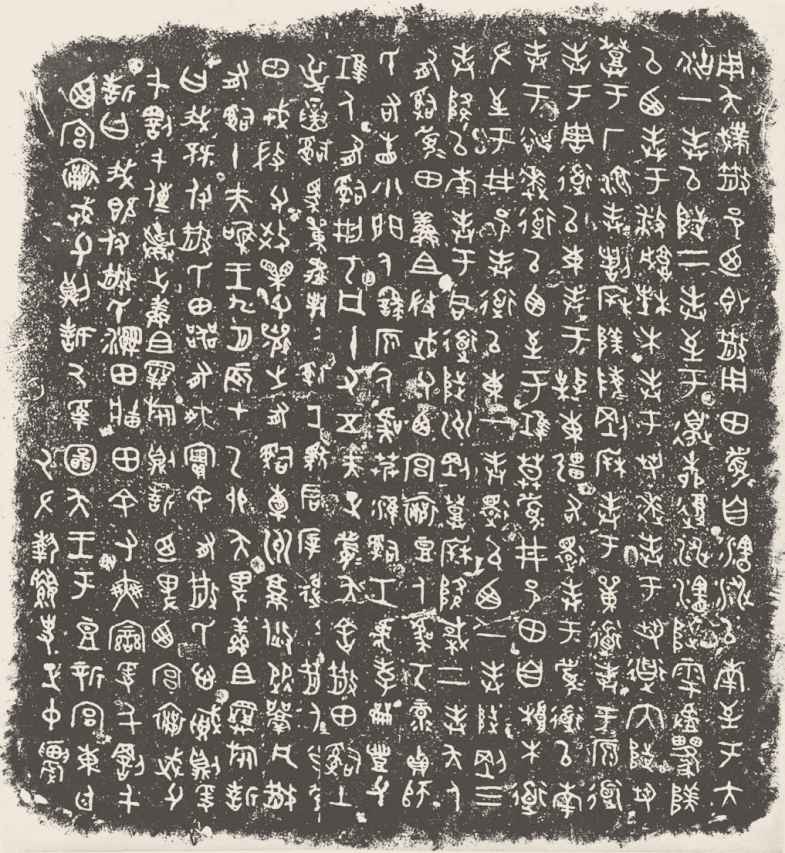 用夨撲散邑廼即散用田眉自瀗涉以南至于大
沽一封以陟二封至于邊柳復涉瀗陟雩
以西封于播城楮木封于芻逨封于芻道內陟芻
登于厂湶封剖桩陵剛桩封于單道封于原道
封于周道以東封于棹東疆右還封于眉道以南
封于逨道以西至于堆莫眉井邑田自根木道
左至于井邑封道以東一封還以西一封陟剛三
封降以南封于同道陟州剛登桩降棫二封夨人
有嗣眉田鮮且微武父西宮襄豆人虞丂彔貞師
氏右眚小門人繇原人虞艿淮嗣工虎孝龠豐父
堆人有嗣刑丂凡十又五夫正眉夨舍散田嗣土
屰寅嗣馬單堒邦人嗣工駷君宰德父散人小子眉
田戎微父效果父襄之有嗣橐州就焂從嗣凡散
有嗣十夫唯王九月辰在乙卯夨卑鮮且旅誓
曰我既付散氏田器有爽實余有散氏心賊則爰
千罰千傳棄之鮮且旅則誓廼卑西宮襄武父
誓曰我既付散氏濕田畛田余有爽變爰千罰千
西宮襄武父則誓厥受圖夨王于豆新宮東廷
厥左執縲史正中農